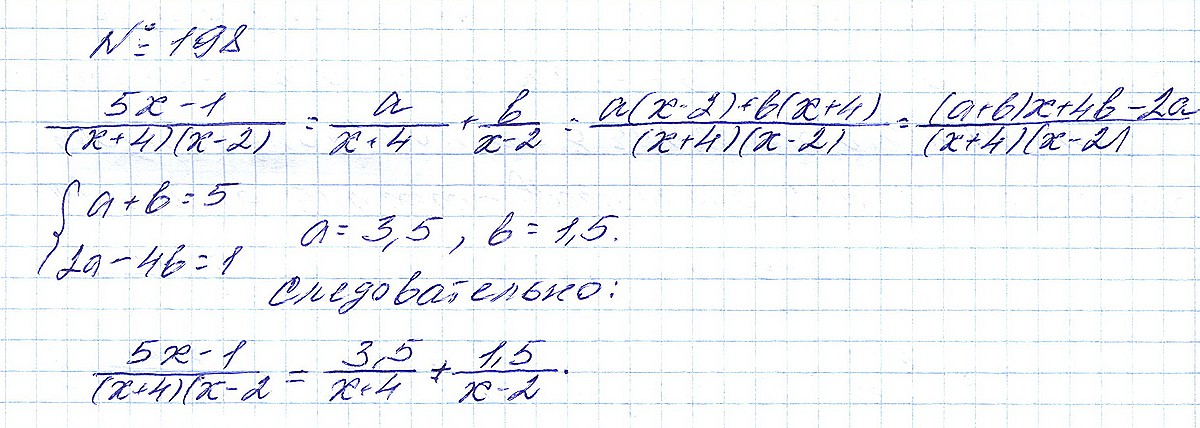 № 198
(5x-1)/((x+4)(x-2)) = a/(x+4) + b/(x-2) = (a(x-2)+b(x+4))/((x+4)(x-2)) = ((a+b)x+4b-2a)/((x+4)(x-2))
{ a+b=5
2a-4b=1
a=3,5, b=1,5.
следовательно:
(5x-1)/((x+4)(x-2 = 3,5/(x+4) + 1,5/(x-2).